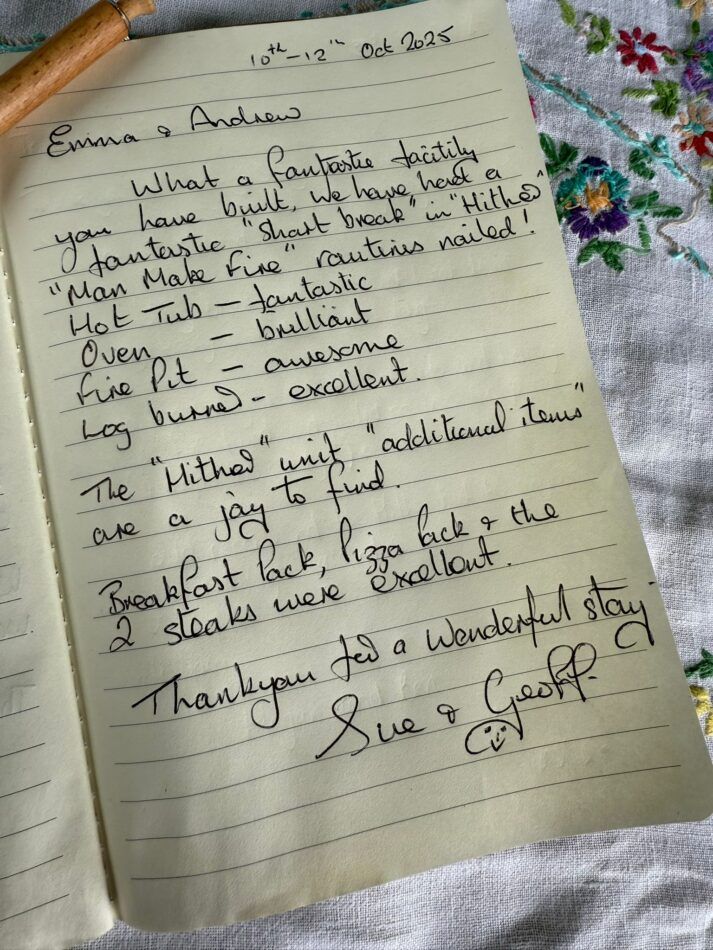 10th - 12th Oct 2025
Emma & Andrew
What a fantastic facitily
you have built, we have had a
fantastic "short break" in "Hither"
"Man Make Fire" routines nailed!
Hot Tub - fantastic
Oven - brilliant
Fire Pit - awesome
Log burner - excellent.
The "Hither" unit "additional items"
are a joy to find.
Breakfast Pack, Pizza Pack & the
2 steaks were excellent.
Thankyou for a wonderful stay
Sue & Geoff.